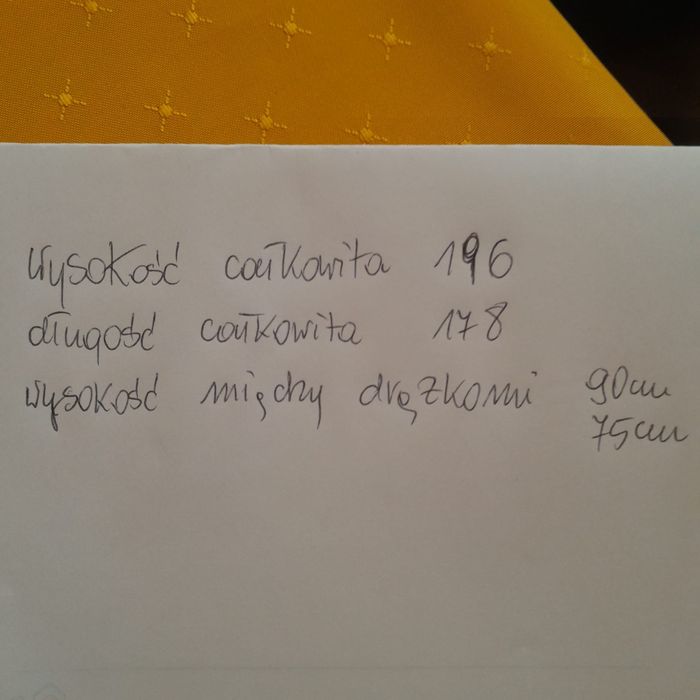 Wysokość całkowita 196
długość całkowita 178
wysokość między drążkami 90cm
75cm